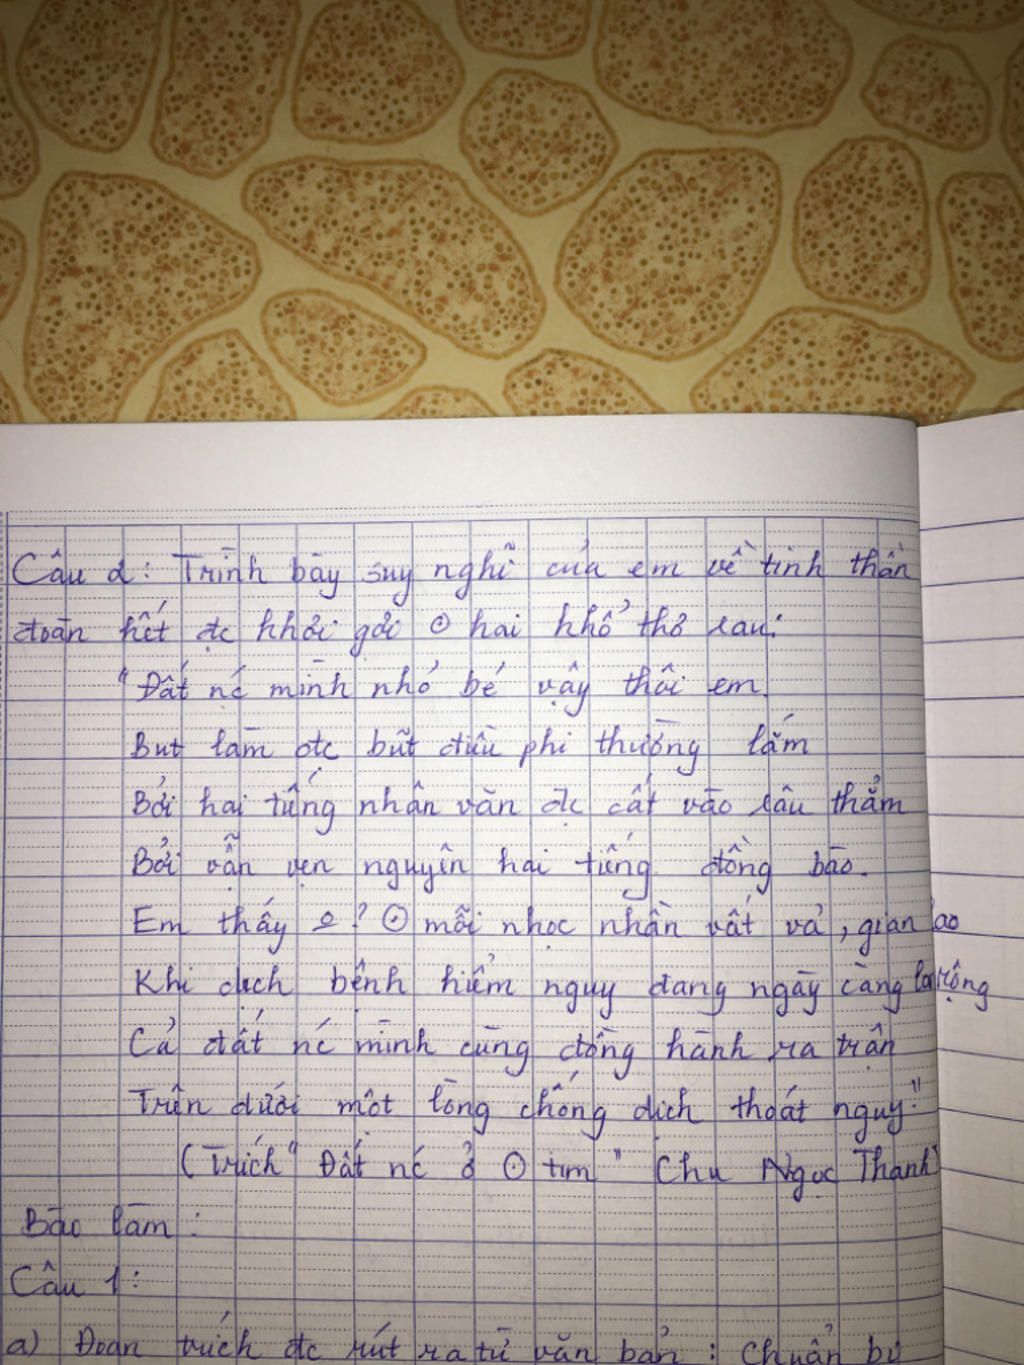 Câu 2: Trình bày suy nghĩ của em về tinh thần
đoàn kết đc khơi gợi ⊙ hai khổ thơ sau:
"Đất nc mình nhỏ bé vậy thôi em
But làm đc btẽ điều phi thường lắm
Bởi hai tiếng nhân văn đc cất vào sâu thẳm
Bởi vẫn vẹn nguyên hai tiếng đồng bào.
Em thấy o? ⊙ mỗi nhọc nhằn vất vả, gian lao
Khi dịch bệnh hiểm nguy đang ngày càng lan rộng
Cả đất nc mình cùng đồng hành ra trận
Trên dưới một lòng chống dịch thoát nguy."
(Trích "Đất nc ở ⊙ tim" Chu Ngọc Thanh)
Bào làm:
Câu 1:
a) Đoạn trích đc rút ra từ văn bản: Chuẩn bị